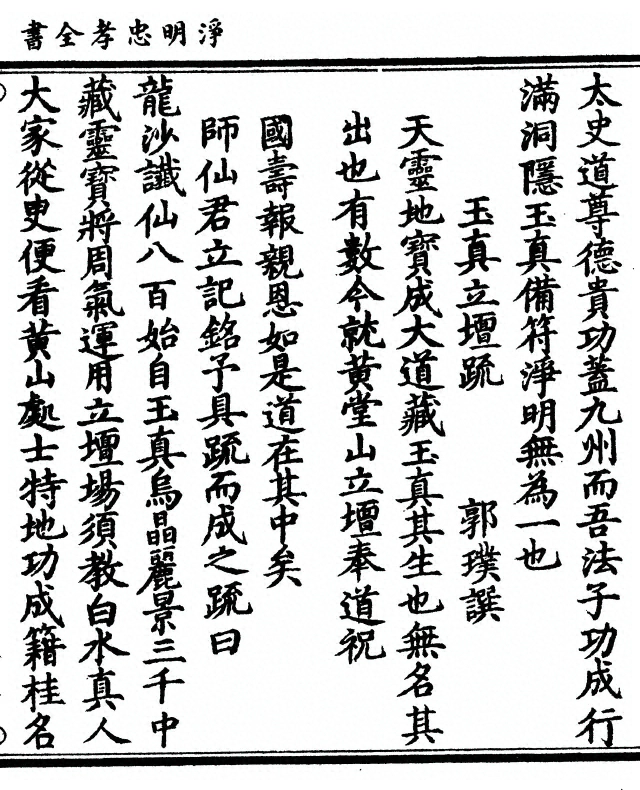 淨明忠孝全書
太史道尊德貴功蓋九州而吾法子功成行
滿洞隱玉真備符淨明無為一也
玉真立壇疏 郭璞譔
天靈地寶成大道藏玉真其生也無名其
出也有數今就黃堂山立壇奉道祝
國壽報親恩如是道在其中矣
師仙君立記銘予具疏而成之疏曰
龍沙讖仙八百始自玉真烏晶麗景三千中
藏靈寶將周氣運用立壇場須教白水真人
大家從臾便看黃山處士特地功成籍桂名